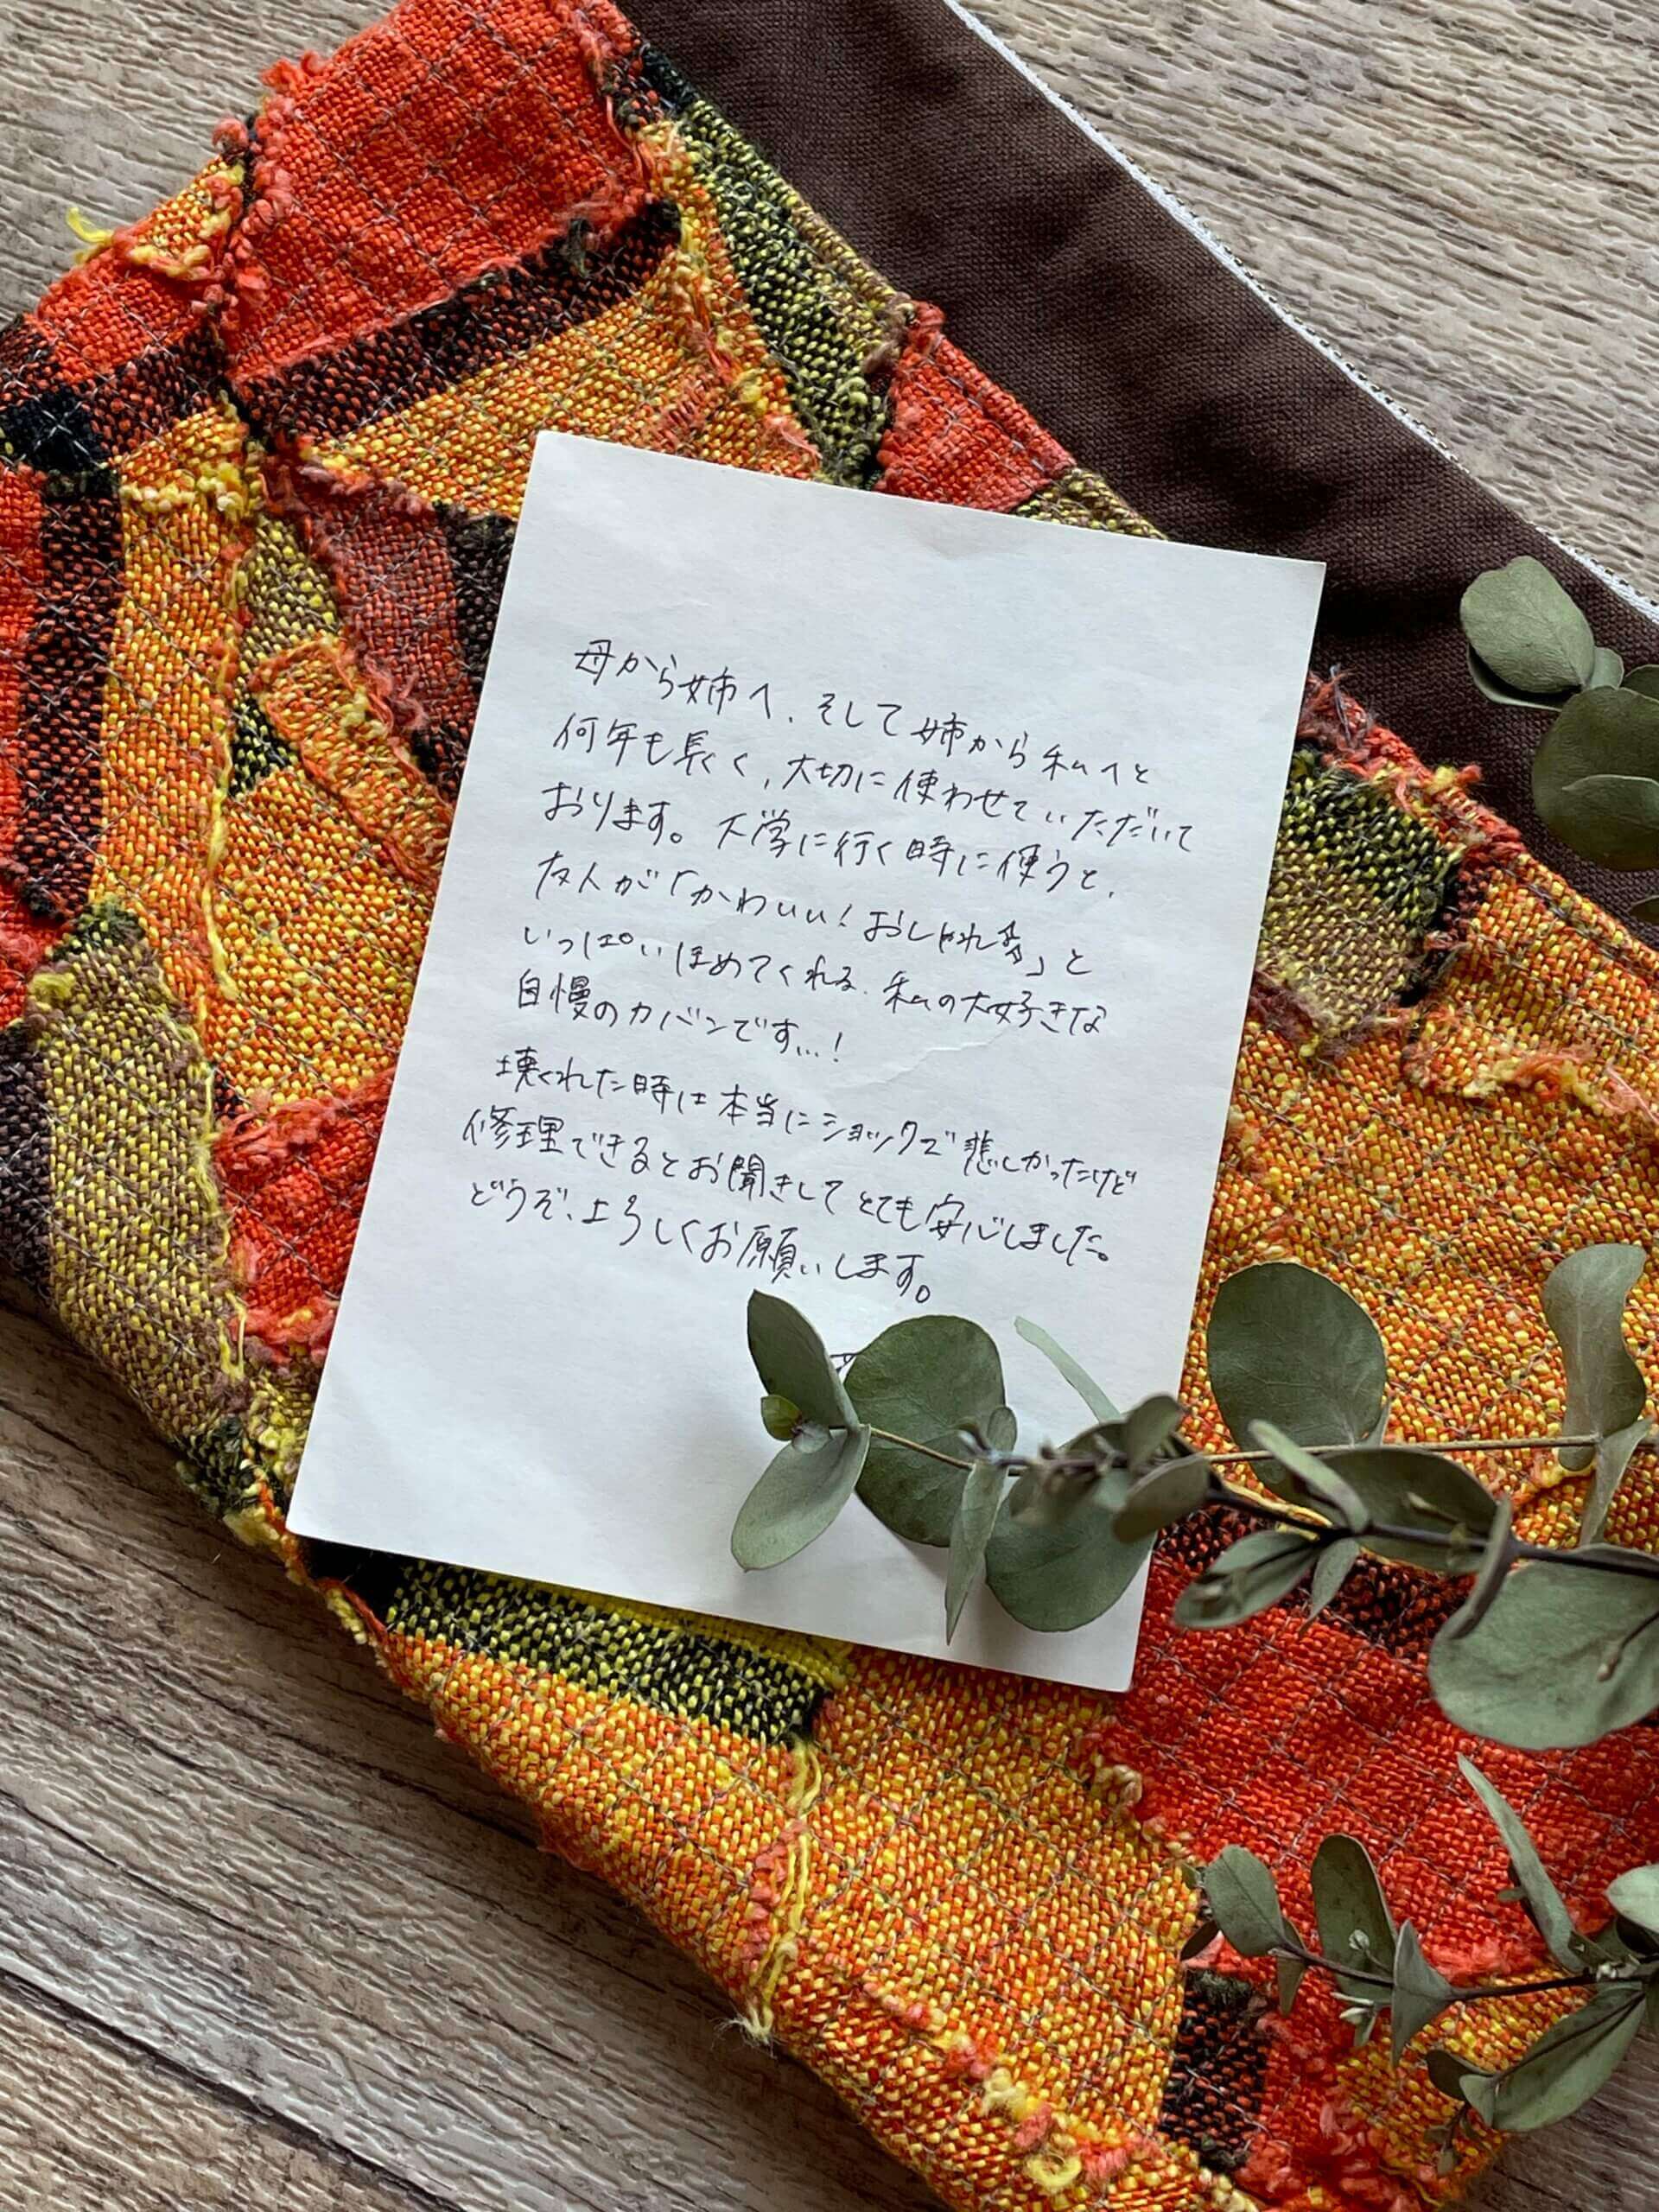 母から姉へ、そして姉から私へと
何年も長く、大切に使わせていただいて
おります。大学に行く時に使うと、
友人が「かわいい！おしゃれ〜」と
いっぱいほめてくれる、私の大好きな
自慢のカバンです…！
壊くれた時は本当にショックで悲しかったけど
修理できるとお聞きしてとても安心しました。
どうぞ、よろしくお願いします。